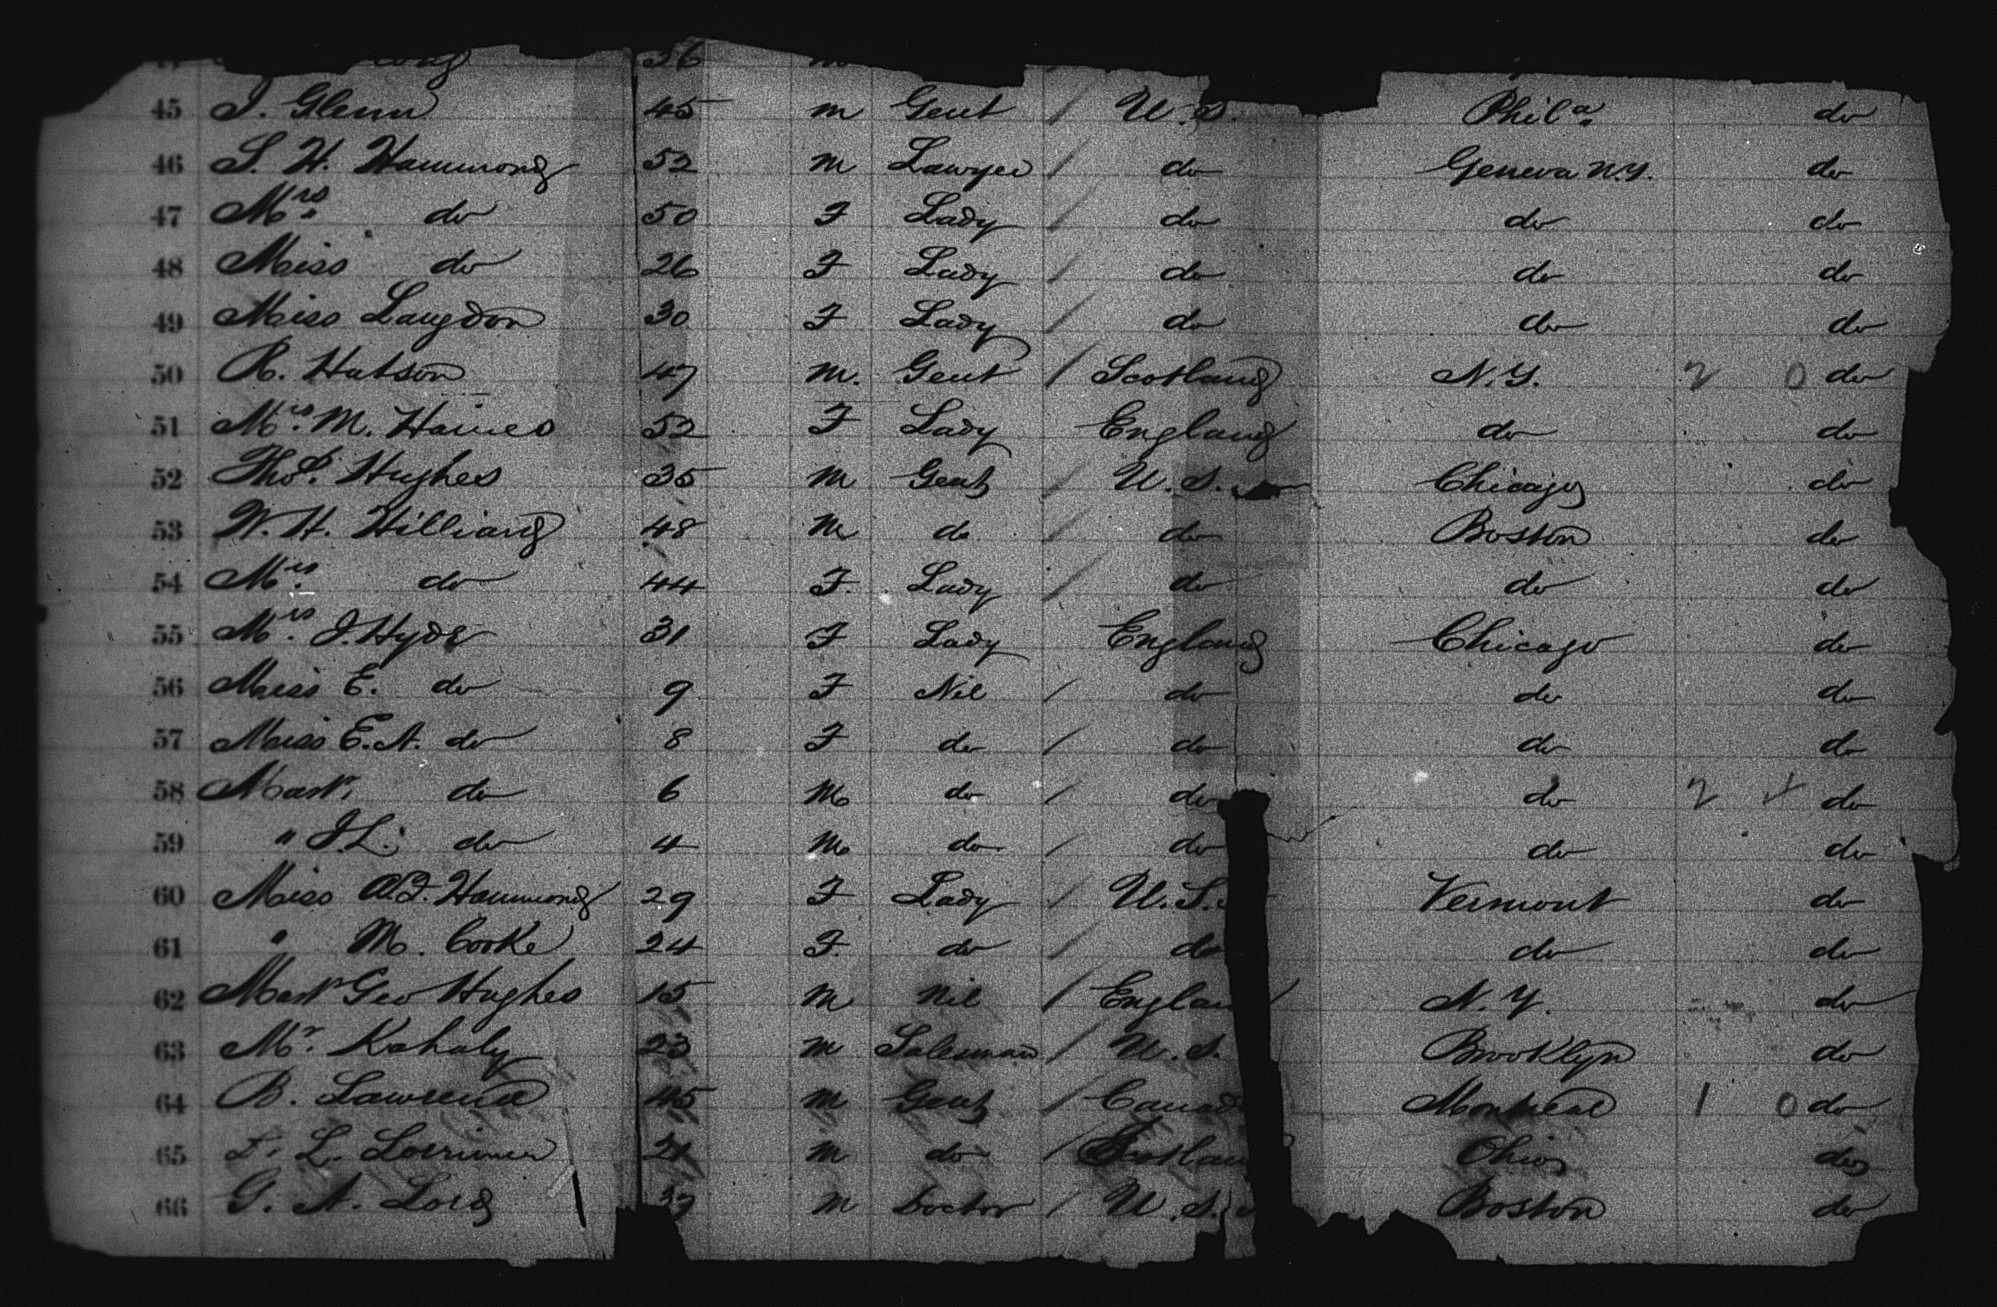 36 m
45 J. Glenn 45 m Gent / U.S. Phila. do
46 S. H. Hammond 52 m Lawyer / do Geneva N.Y. do
47 Mrs. do 50 F Lady / do do do
48 Miss do 26 F Lady / do do do
49 Miss Langdon 30 F Lady / do do do
50 R. Hutson 47 m. Gent / Scotland N.Y. 2 0 do
51 Mrs. M. Haines 52 F Lady England do do
52 Thos. Hughes 35 m Gent / U.S. Chicago do
53 W. H. Hilliard 48 m do / do Boston do
54 Mrs. do 44 F. Lady / do do do
55 Mrs. J. Hyde 31 F Lady England Chicago do
56 Miss E. do 9 F Nil / do do do
57 Miss E. A. do 8 F do / do do do
58 Mastr. do 6 m do / do do 2 do
59 " J. L. do 4 m do / do do do
60 Miss A. F. Hammond 29 F Lady / U.S. Vermont do
61 " M. Cooke 24 F. do / do do do
62 Mastr Geo Hughes 15 m Nil / Englan N.Y. do
63 Mr. Kahaly 23 m Salesman / U.S. Brooklyn do
64 B. Lawrence 45 m Gent / Canad Montreal 1 0 do
65 L. Lorrimer 21 m do / Scotlan Ohio do
66 G. A. Lord m Doctor / U.S. Boston do